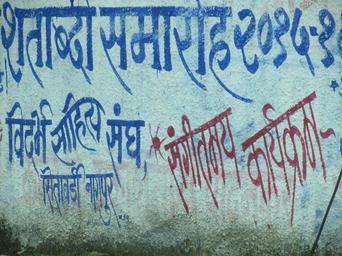 शताब्दी समारोह २०१५-१
विदर्भ साहित्य संघ,
सिताबर्डी नागपुर
संगीतमय
कार्यक्रम